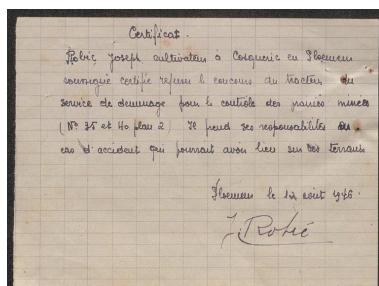 Certificat.
Robic Joseph cultivateur à Cosqueric en Ploemeur
soussigné certifie refuser le concours du tracteur du
service de déminage pour le contrôle des parcelles minées
(N° 35 et 40 plan 2) Il prend ses responsabilités en
cas d'accident qui pourrait avoir lieu sur ces terrains
Ploemeur le 12 août 1946.
J. Robic